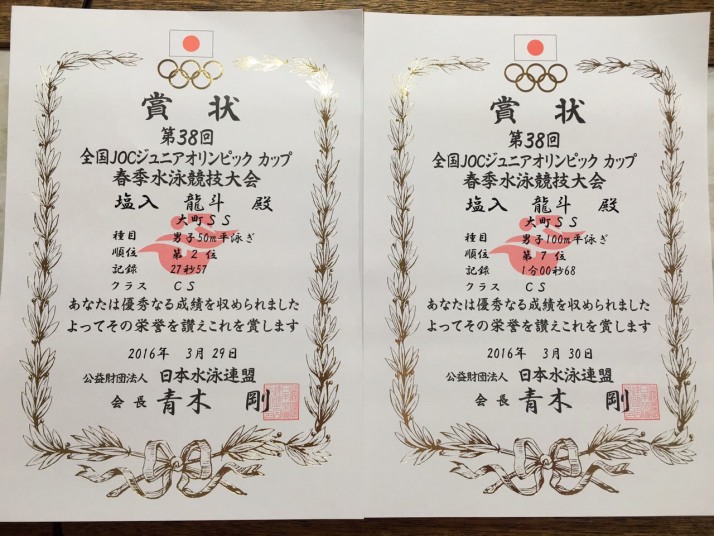 賞状
第38回
全国JOCジュニアオリンピック カップ
春季水泳競技大会
塩入 龍斗 殿
大町SS
種目 男子50m平泳ぎ
順位 第2位
記録 27秒57
クラス CS
あなたは優秀なる成績を収められました
よってその栄誉を讃えこれを賞します
2016年 3月29日
公益財団法人 日本水泳連盟
会長 青木 剛
賞状
第38回
全国JOCジュニアオリンピック カップ
春季水泳競技大会
塩入 龍斗 殿
大町SS
種目 男子100m平泳ぎ
順位 第7位
記録 1分00秒68
クラス CS
あなたは優秀なる成績を収められました
よってその栄誉を讃えこれを賞します
2016年 3月30日
公益財団法人 日本水泳連盟
会長 青木 剛